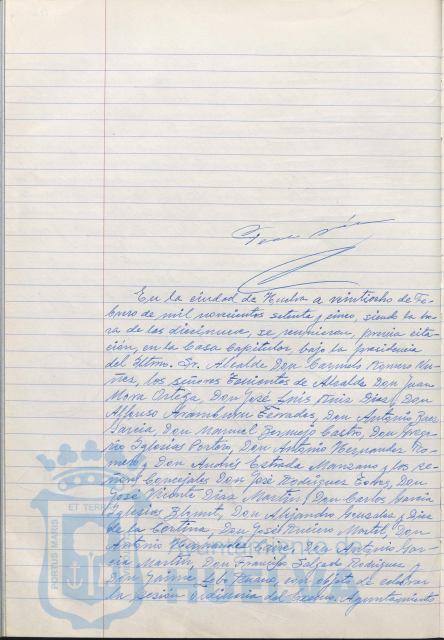 En la ciudad de Huelva a veintiocho de Fe-
brero de mil novecientos setenta y cinco, siendo la ho-
ra de las diecinueve, se reunieron, previa cita-
ción, en la Casa Capitular bajo la presidencia
del Iltmo. Sr. Alcalde Don Carmelo Romero Nu-
ñez, los señores Tenientes de Alcalde Don Juan
Mora Ortega, Don José Luis Ruiz Diaz, Don
Alfonso Aramburu Terrades, Don Antonio
Garcia, Don Manuel Bermejo Castro, Don Grego-
rio Iglesias Don Antonio Hernandez Ro-
mero y Don Andrés Estrada Manzano y los se-
ñores Concejales Don José Rodriguez Don
José Vicente Diaz Martin, Don Carlos Garcia
Iglesias Don Alejandro Gonzalez y Diaz
de la Cortina, Don José Don
Antonio Don Antonio Gar-
cia Martin, Don Francisco Salgado Rodriguez
Don Jaime con objeto de celebrar
la sesión ordinaria del Excmo. Ayuntamiento
PORTUS MARIS
ET TERR